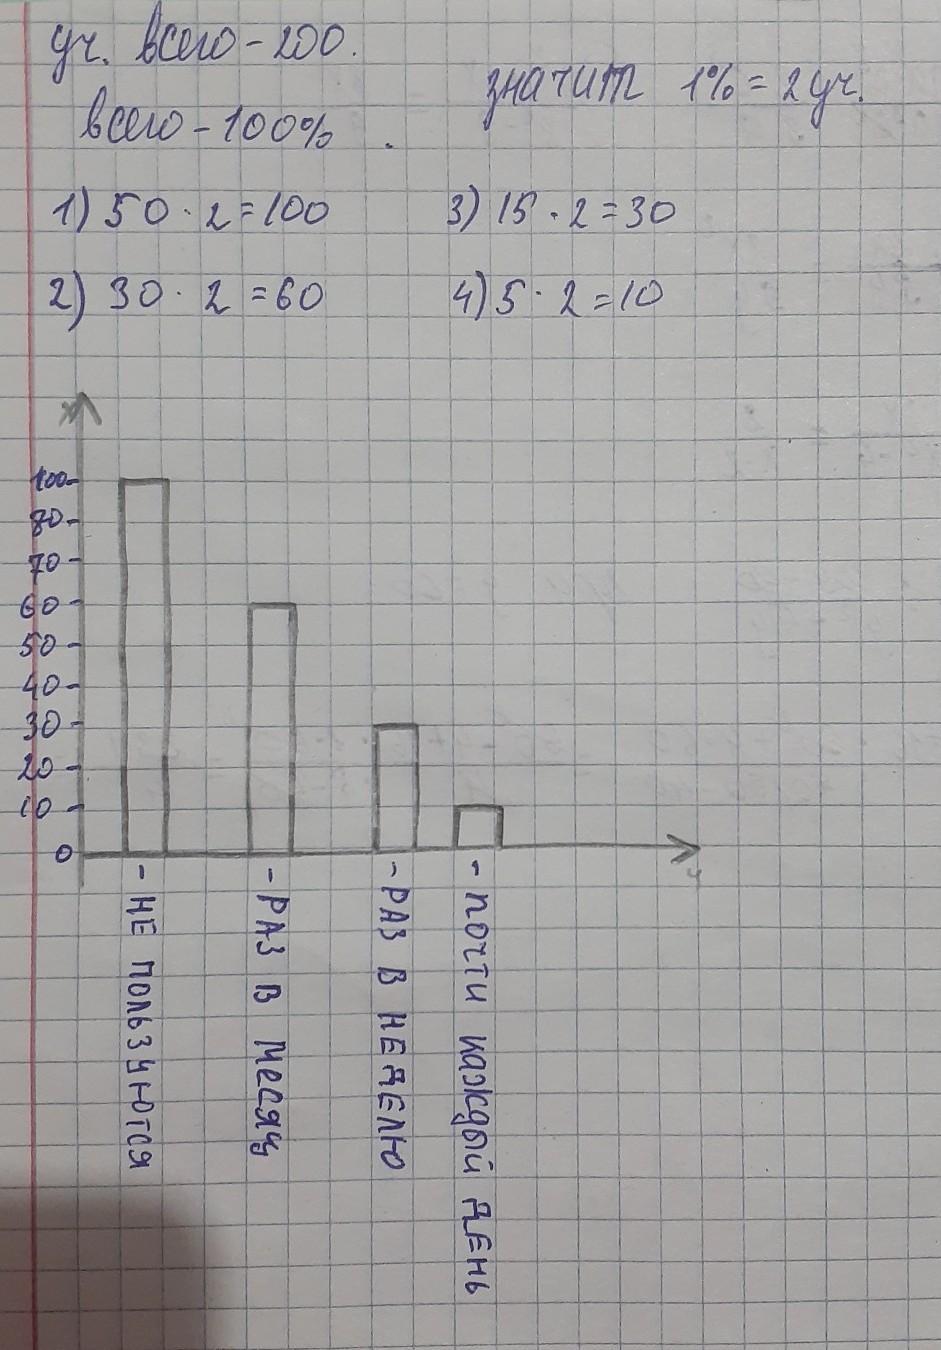 уч. всего - 200.
всего - 100%.
значит 1% = 2 уч.
1) 50 · 2 = 100
2) 30 · 2 = 60
3) 15 · 2 = 30
4) 5 · 2 = 10
100
80
70
60
50
40
30
20
10
0
- НЕ ПОЛЬЗУЮТСЯ
- РАЗ В МЕСЯЦ
- РАЗ В НЕДЕЛЮ
- ПОЧТИ КАЖДЫЙ ДЕНЬ